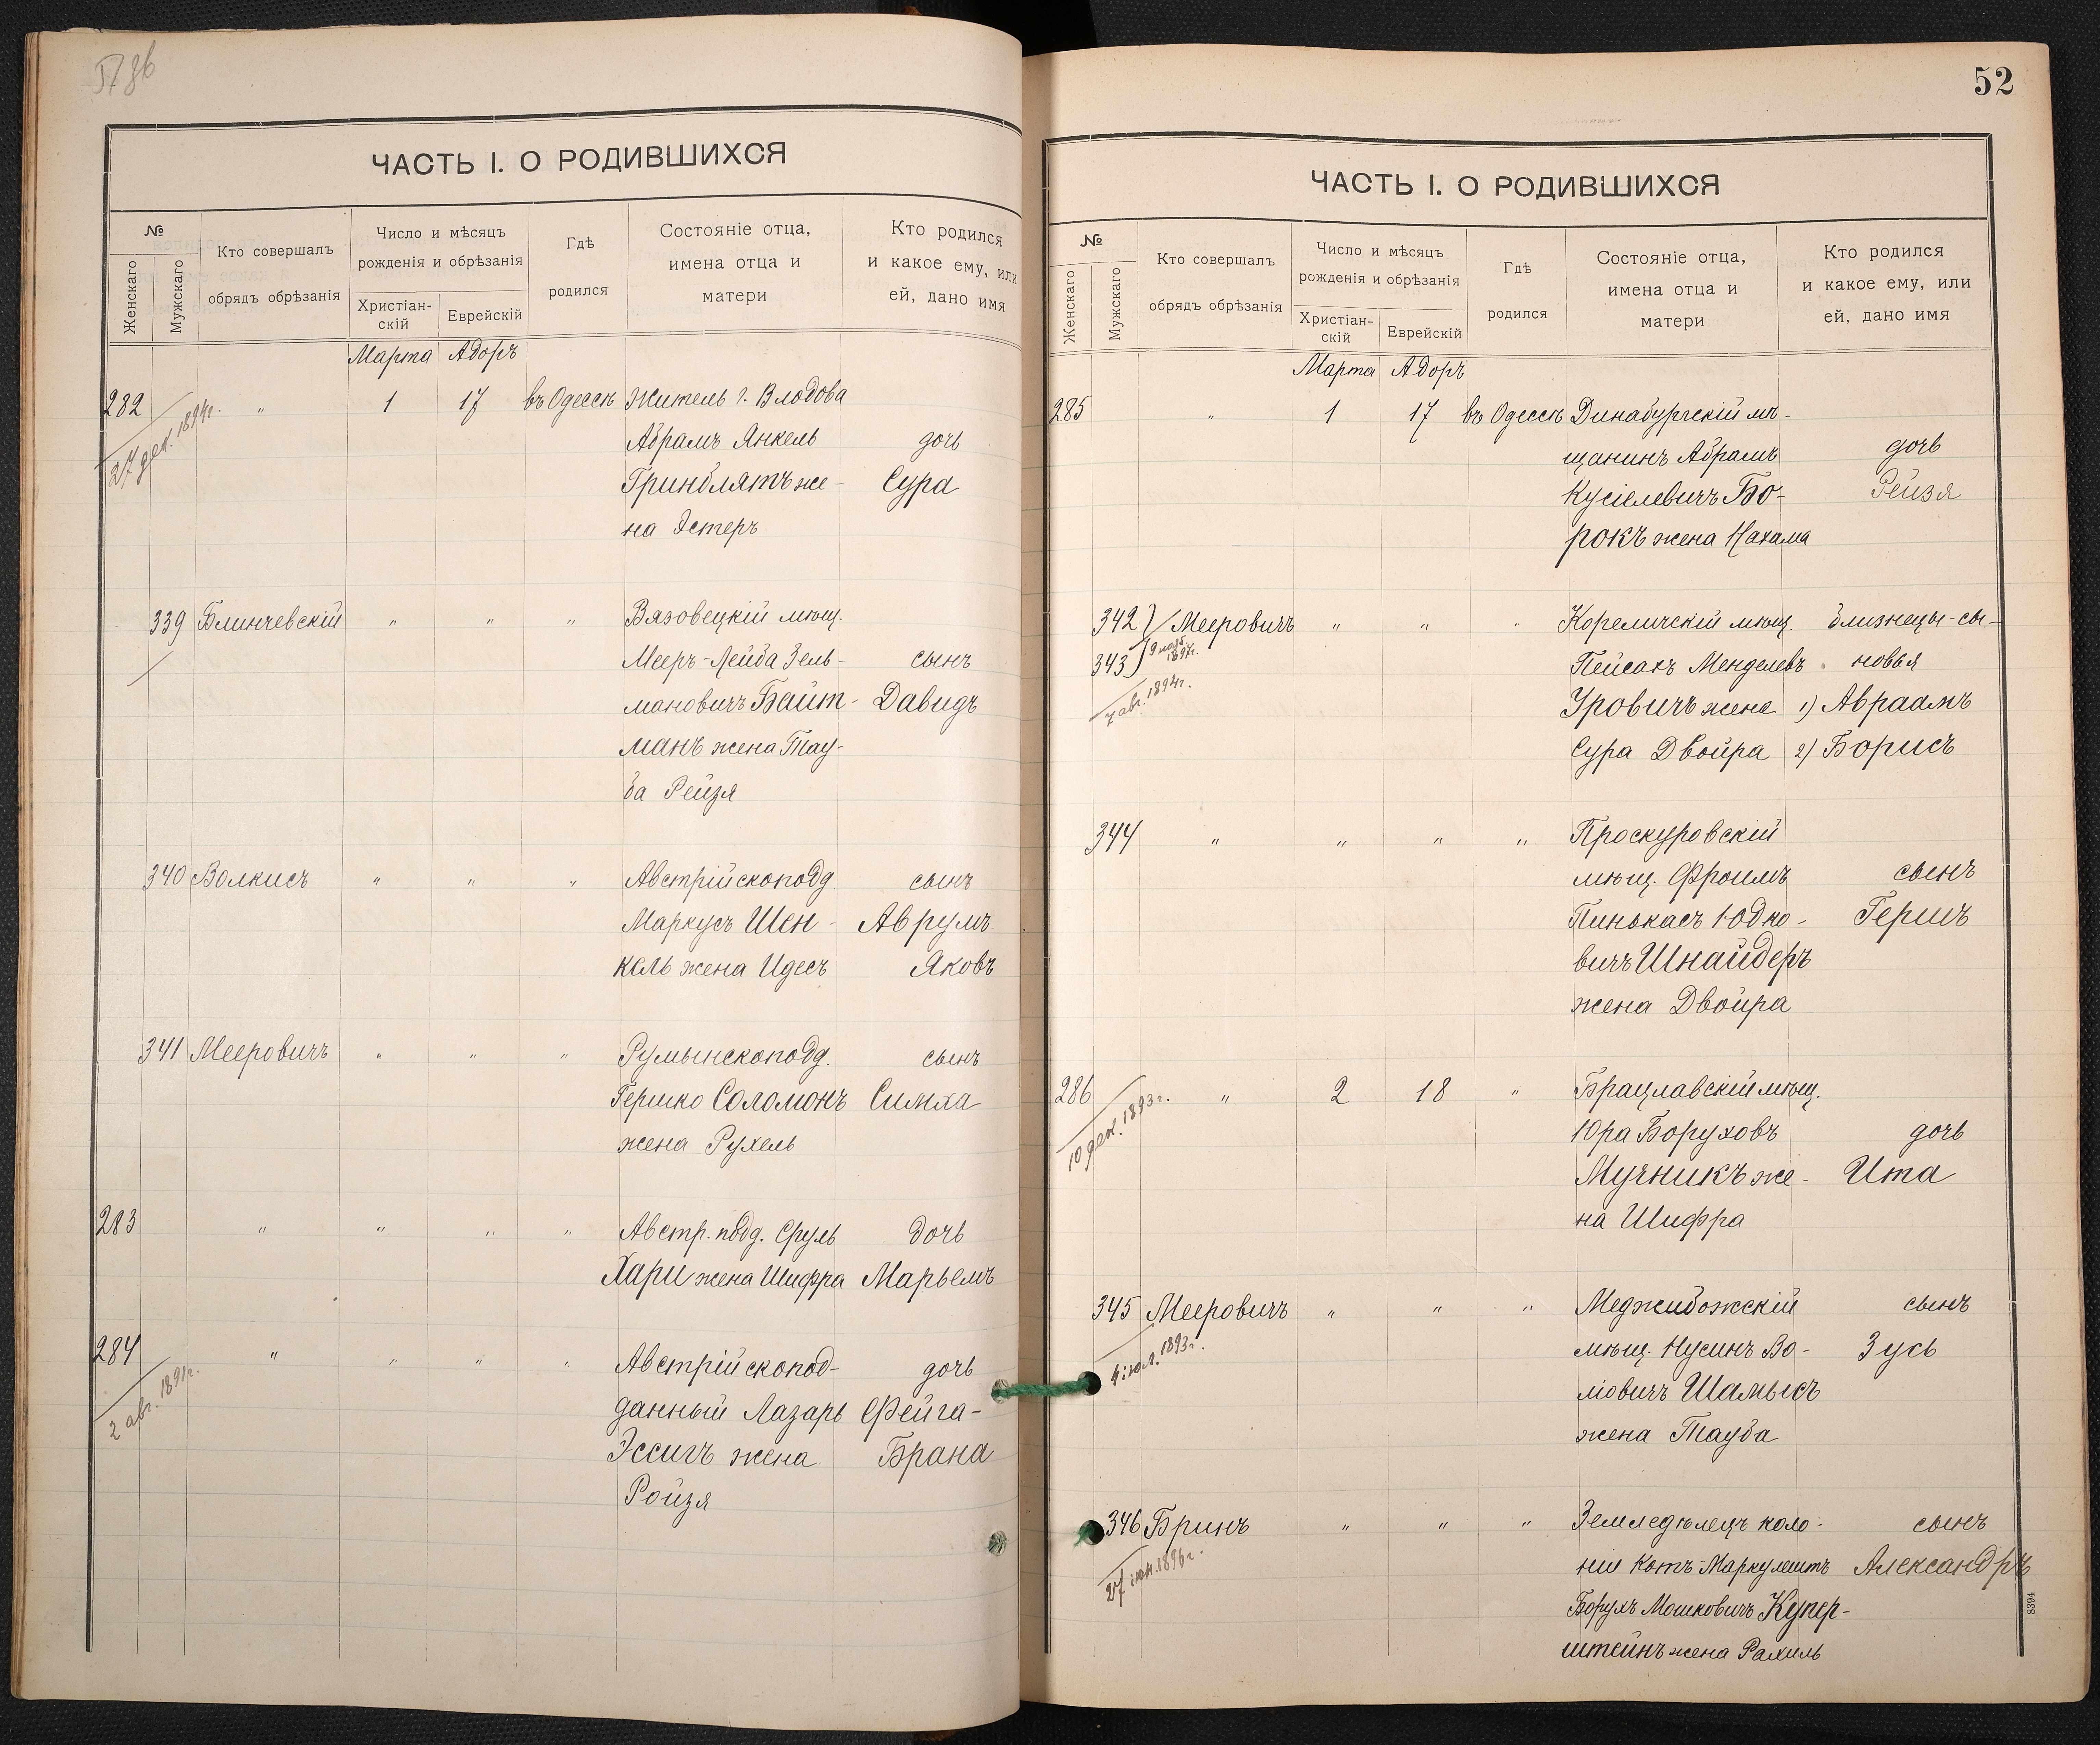 ЧАСТЬ I. О РОДИВШИХСЯ
№
Женскаго
Мужскаго
Кто совершалъ
обрядъ обрѣзанія
Число и мѣсяцъ
рожденія и обрѣзанія
Христіан-
скій
Еврейскій
Гдѣ
родился
Состояніе отца,
имена отца и
матери
Кто родился
и какое ему, или
ей, дано имя
Марта Адоръ
282 " 1 17 въ Одессѣ Житель г. Влодова
27 дек. 1894г.
Абрамъ Янкель дочь
Гринблятъ же- Сура
на Эстеръ
339 Блинчевскій " " " Вязовецкій мѣщ.
Мееръ-Лейба Зель- сынъ
мановичъ Байт- Давидъ
манъ жена Тау-
ба Рейзя
340 Волкисъ " " " Австрійскоподд. сынъ
Маркусъ Шен- Аврумъ
кель жена Идесъ Яковъ
341 Мееровичъ " " " Румынскоподд. сынъ
Гершко Соломонъ Симха
жена Рухель
283 " " " " Австр. подд. Сруль дочь
Хари жена Шифра Марьемъ
284 " " " " Австрійскопод- дочь
2 авг. 1891г.
данный Лазарь Фейга-
Эссигъ жена Брана
Ройзя
52
ЧАСТЬ I. О РОДИВШИХСЯ
№
Женскаго
Мужскаго
Кто совершалъ
обрядъ обрѣзанія
Число и мѣсяцъ
рожденія и обрѣзанія
Христіан-
скій
Еврейскій
Гдѣ
родился
Состояніе отца,
имена отца и
матери
Кто родился
и какое ему, или
ей, дано имя
Марта Адоръ
285 " 1 17 въ Одессѣ Динабургскій мѣ-
щанинъ Абрамъ дочь
Кусіелевичъ Бо- Рейзя
рокъ жена Нахама
342 Мееровичъ " " " Кореличскій мѣщ. близнецы-сы-
343 Пейсахъ Менделевъ новья
7 авг. 1894г.
Уровичъ жена 1) Авраамъ
Сура Двойра 2) Борисъ
344 " " " " Проскуровскій
мѣщ. Фроимъ сынъ
Пинькасъ Юдко- Гершъ
вичъ Шнайдеръ
жена Двойра
286 " 2 18 " Брацлавскій мѣщ.
10 дек. 1893г.
Юра Боруховъ дочь
Мучникъ же- Ита
на Шифра
345 Мееровичъ " " " Меджибожскій сынъ
4 іюл. 1893г.
мѣщ. Нусинъ Во- Зусь
ліовичъ Шамысъ
жена Тауба
346 Бринъ " " " Земледѣлецъ коло- сынъ
27 1896г.
ніи Котъ-Маркулештъ Александръ
Борухъ Мошковичъ Купер-
штейнъ жена Рахиль
8394